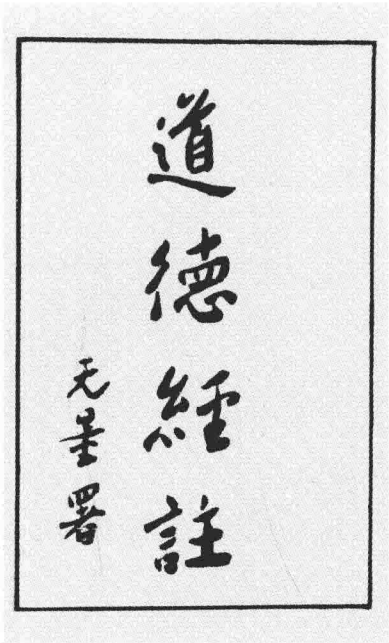 道德經註
无量署